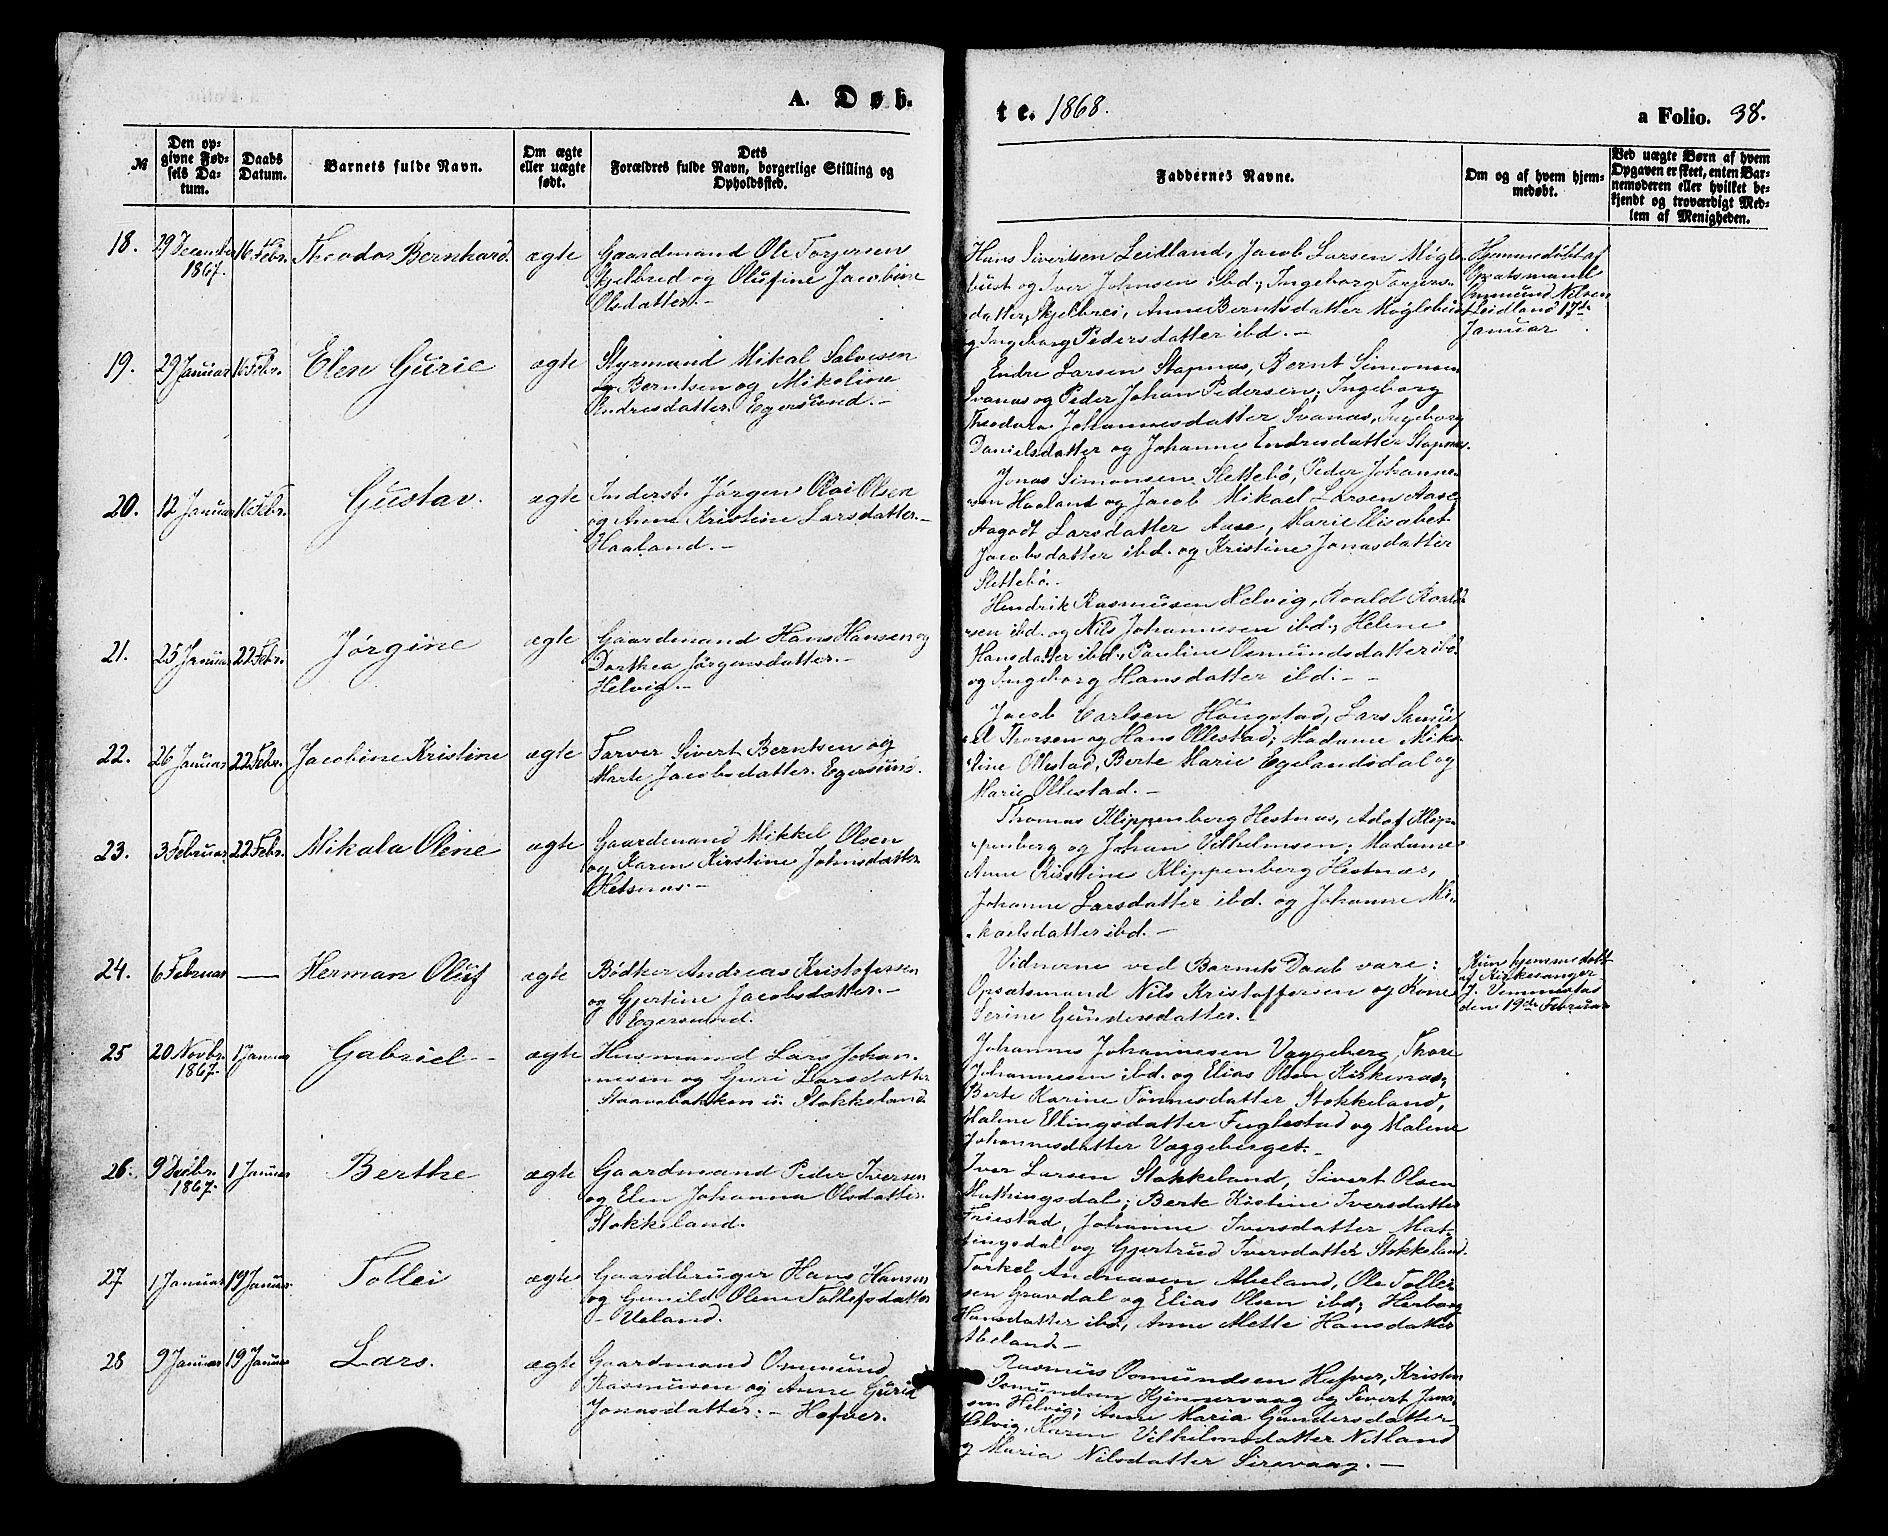 A. Døb-
te. 1868.
a Folio. 38.
№
Den op-
givne Fød-
sels Da-
tum.
Daabs
Datum.
Barnets fulde Navn.
Om ægte
eller uægte
født.
Dets
Forældres fulde Navn, borgerlige Stilling og
Opholdssted.
Faddernes Navne.
Om og af hvem hjem-
medøbt.
Ved uægte Børn af hvem
Opgaven er skeet, enten Bar-
nemoderen eller hvilket be-
kjendt og troværdigt Med-
lem af Menigheden.
18.
29 December
1867.
16 Febr.
Theodor Bernhard.
ægte
Gaardmand Ole Torjersen
Skjelbred og Olufine Jacobine
Olsdatter.-
Hans Sivertsen Leidland, Jacob Larsen Møgle-
bust og Iver Johnsen ibd.; Ingeborg Torgers-
datter Skjelbrei, Anne Berntsdatter Møglebust
og Ingeborg Pedersdatter ibd. -
Hjemmedøbt af
Opsatsmand
Osmund Nilsen
Leidland 17de
Januar
19.
29 Januar
16 Febr.
Elen Gurie
ægte
Styrmand Mikal Salvesen
Berntsen og Mikoline
Andreasdatter. Egersund. -
Endre Larsen Stapnes, Bernt Simonsen
Svanæs og Peder Johan Pedersen; Ingeborg
Theodora Johannesdatter Svanæs, Ingeborg
Danielsdatter og Johanne Endresdatter Stapnes.
20.
12 Januar
16 Febr.
Gustav.
ægte
Inderst. Jørgen Olai Olsen
og Anne Kristine Larsdatter. -
Haaland. -
Jonas Simonsen Slettebø, Peder Johanne-
sen Haaland og Jacob Mikael Larsen Aase
Aagodt Larsdatter Aase, Marie Elisabet
Jacobsdatter ibd. og Kristine Jonasdatter
Slettebø. -
21.
25 Januar
22 Febr.
Jørgine
ægte
Gaardmand Hans Hansen og
Dorthea Jørgensdatter. -
Helvig. -
Hendrik Rasmusen Helvig, Roald Roald-
sen ibd. og Nils Johannesen ibd.; Helene
Hansdatter ibd., Pauline Osmundsdatter ibd.
og Ingeborg Hansdatter ibd. - -
22.
26 Januar
22 Febr.
Jacobine Kristine
ægte
Farver Sivert Berntsen og
Marte Jacobsdatter. Egersund.
Jacob Carlsen Haugstad, Lars Samu-
el Thorsen og Hans Ollestad; Madame Mika-
line Ollestad, Berte Marie Egelandsdal og
Marie Ollestad. -
23.
3 Februar
22 Febr.
Mikala Oline
ægte
Gaardmand Mikkel Olsen
og Karen Kirstine Johnsdatter
Hetsnæs. -
Thomas Klippenberg Hestnæs, Adolf Klip-
penberg og Johan Vilhelmsen; Madame
Anne Kirstine Klippenberg Hestnæs,
Johanne Larsdatter ibd. og Johanne Mi-
kaelsdatter ibd. -
24.
6 Februar
—
Herman Oluf
ægte
Bødker Andreas Kristofersen
og Gjertine Jacobsdatter. -
Egersund.
Vidnerne ved Barnets Daab vare:
Opsatsmand Nils Kristoffersen og Kone
Serine Gundersdatter. -
Kun hjemmedøbt
af Kirkesanger
J. Vemmestad
den 19de Februar
25
20 Novbr.
1867.
1 Januar
Gabriel -
ægte
Husmand Lars Johan-
nesen og Guri Larsdatter
Staavebakken u. Stokkeland
Johannes Johannesen Vaggeberg, Thore
Johannesen ibd. og Elias Olsen Kirkenæs;
Berte Karine Tønnesdatter Stokkeland,
Malene Ellingsdatter Fuglestad og Malene
Johannesdatter Vaggeberget. -
26.
9 Decbr.
1867.
1 Januar
Berthe
ægte
Gaardmand Peder Iversen
og Elen Johanna Olsdatter.
Stokkeland.
Iver Larsen Stokkeland, Sivert Olsen
Mathingsdal; Berte Kristine Iversdatter
Friestad, Johanne Iversdatter Mat-
tingsdal og Gjertrud Iversdatter Stokkeland.
27
1 Januar
19 Januar
Tollei
ægte
Gaardbruger Hans Hansen
og Gunild Olene Tollefsdatter
- Ueland.
Torkel Andreasen Abeland, Ole Tollei-
sen Gravdal og Elias Olsen ibd; Herborg
Hansdatter ibd., Anne Mette Hansdatter
Abeland. -
28
9 Januar
19 Januar
Lars.
ægte
Gaardmand Osmund
Rasmusen og Anne Gurid
Jonasdatter. - Hofver.
Rasmus Osmundsen Hofver, Kristen
Osmundsen Kjinnervaag og Sivert Jona-
sen Helvig; Anne Maria Gundersdatter
Helvig, Karen Vilhelmsdatter Nitland
og Maria Nilsdatter Sirevaag. -